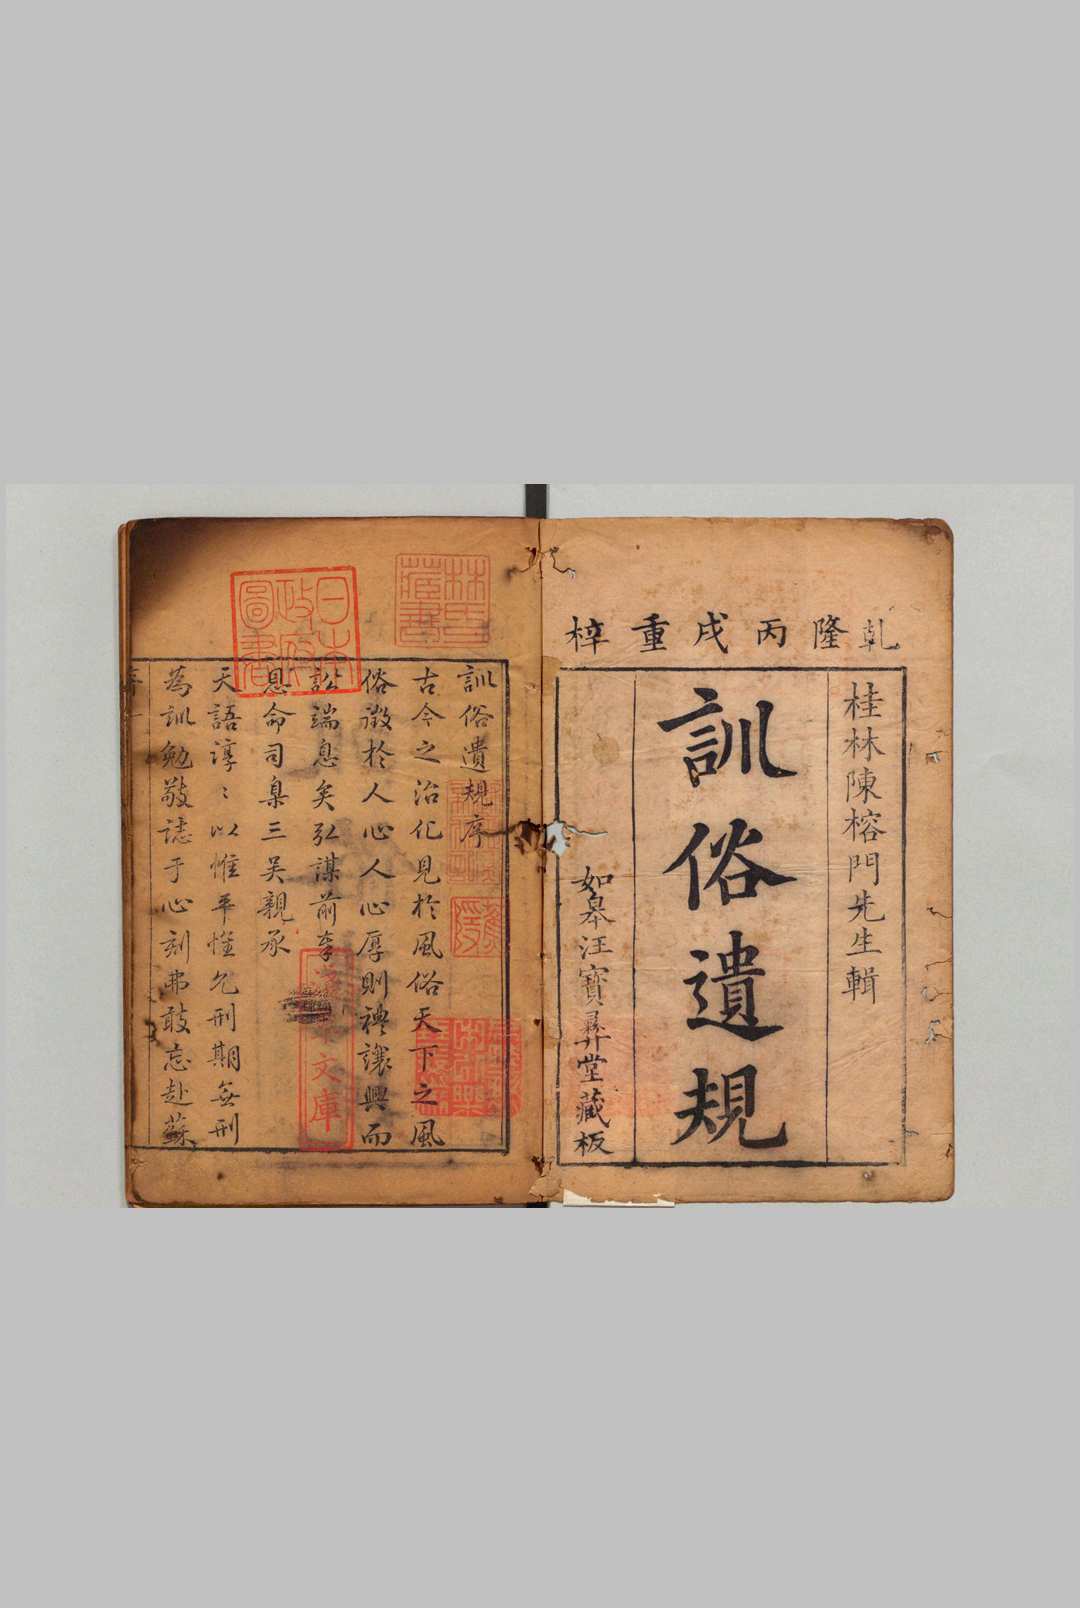 乾隆丙戌重梓
桂林陳榕門先生輯
訓俗遺規
如皋汪寶彞堂藏板
訓俗遺規序
古今之治化見於風俗天下之風
俗徵於人心人心厚則禮讓興而
訟端息矣弘謀前奉
恩命司臬三吴親承
天語諄〻以惟平惟允刑期無刑
為訓勉敬誌于心刻弗敢忘赴蘇
序一
林氏藏書
日本政府圖書
文庫